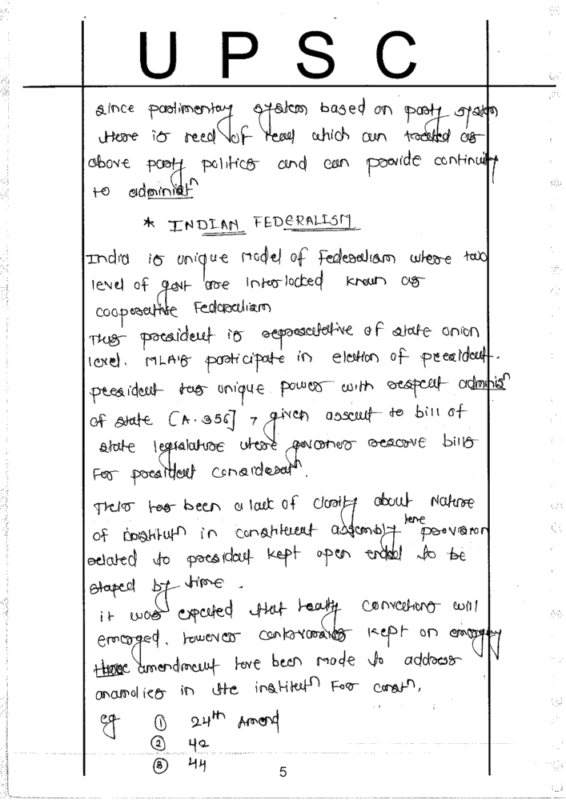 UPSC
since parlimentary system based on party system
there is need of head which can treated as
above party politics and can provide continuity
to administⁿ
* INDIAN FEDERALISM
India is unique model of Federalism where two
level of govt are Interlocked known as
cooperative Federalism
Thus president is representative of state union
level. MLA's participate in election of president.
president has unique power with respect adminisⁿ
of state [A. 356] , given assent to bill of
state legislature where governor reserve bills
For president consideratⁿ.
There has been a lack of clarity about Nature
of institutⁿ in constituent assembly hence provision
related to president kept open ended to be
shaped by time.
it was expected that healthy convections will
emerged. however controversies kept on emerging
these amendment have been made to address
anamolies in the institutⁿ For constⁿ.
eg ① 24th Amend
② 42
③ 44
5